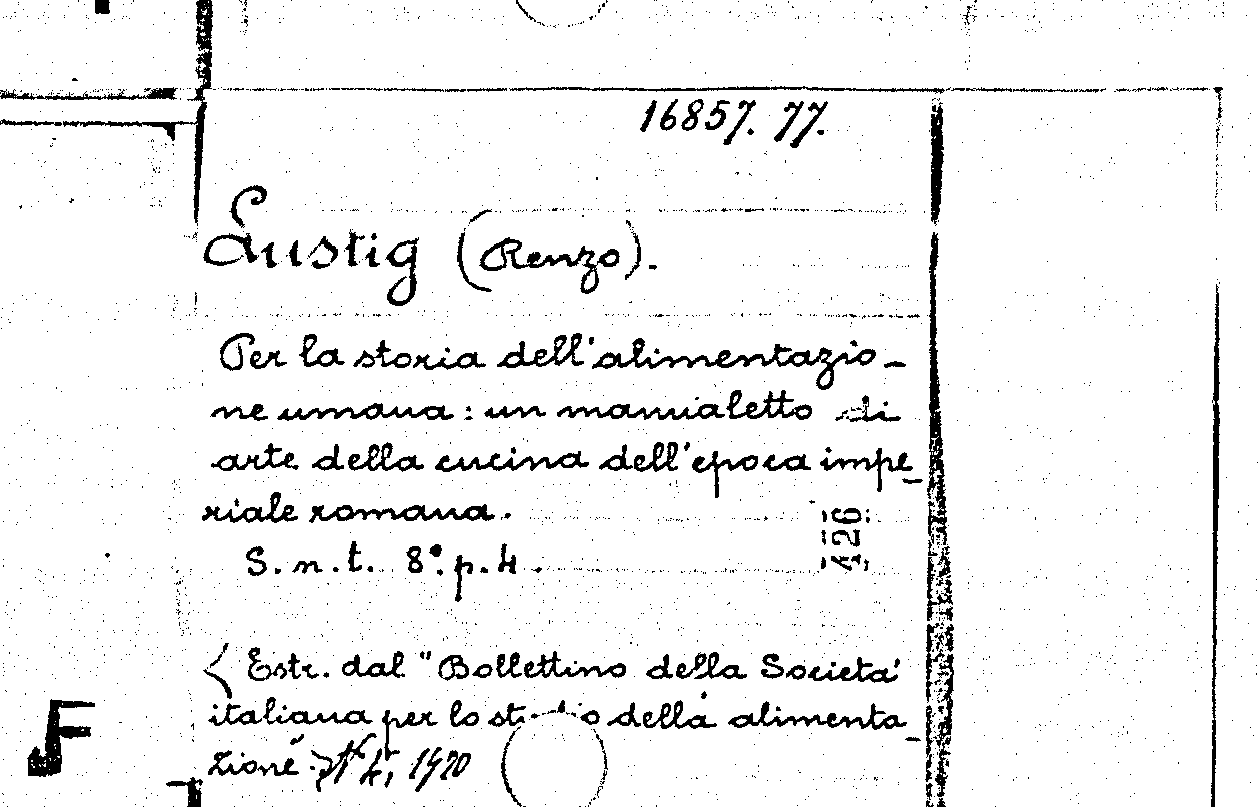 16857. 77.
Lustig (Renzo).
Per la storia dell'alimentazio-
ne umana: un manualetto di
arte della cucina dell'epoca impe-
riale romana.
S. n. t. 8°. p. 4.
426
Estr. dal "Bollettino della Società
italiana per lo studio della alimenta-
zione" N 4, 1920
F